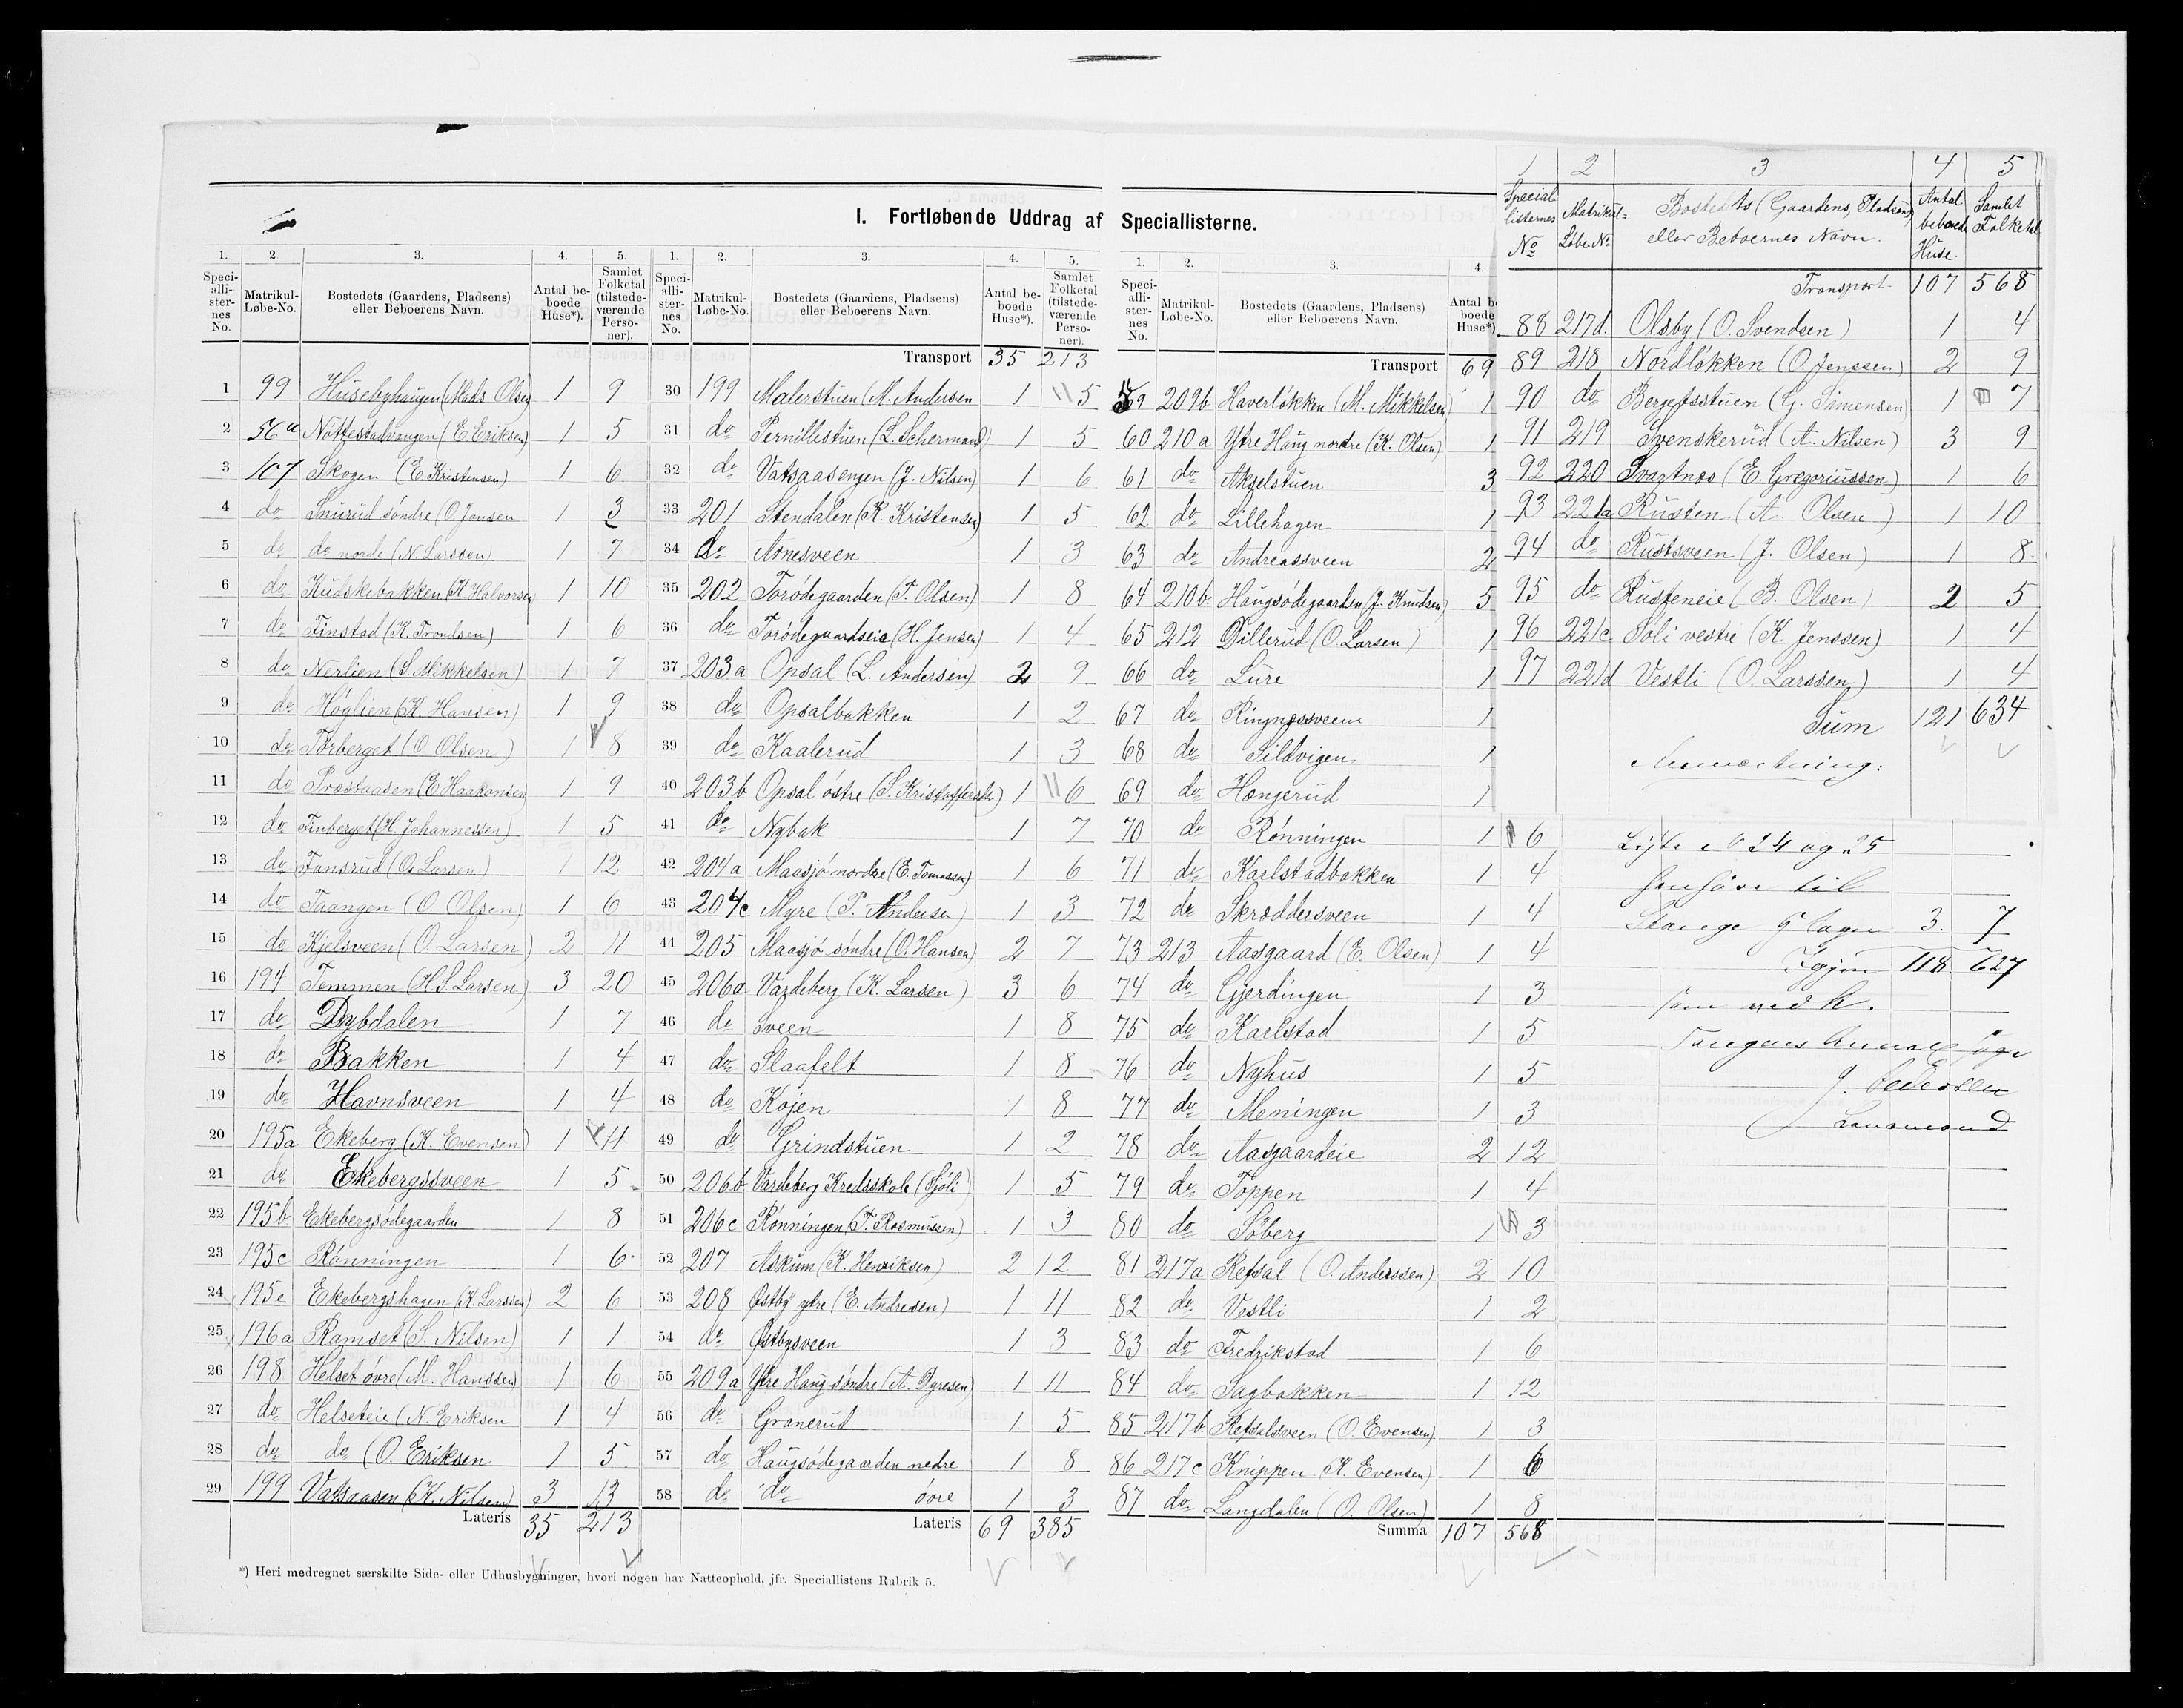 I. Fortløbende Uddrag af Speciallisterne.
1. 2. 3. 4. 5.
Speciallisternes No. Matrikul-Løbe-No. Bostedets (Gaardens, Pladsens) eller Beboerens Navn. Antal beboede Huse*). Samlet Folketal (tilstedeværende Personer).
1 99 Husebyhaugen (Mads Olsen) 1 9
2 56a Nøttestadvangen (E. Eriksen) 1 5
3 107 Skogen (E. Kristensen) 1 6
4 do Snurud søndre (O. Jonsen 1 3
5 do do norde (N. Larssen) 1 7
6 do Kudskebakken (K. Halvorsen) 1 10
7 do Finstad (K. Trondsen) 1 6
8 do Nerlien (S. Mikkelsen) 1 7
9 do Høglien (K. Hansen) 1 9
10 do Torberget (O. Olsen) 1 8
11 do Prøstaasen (E. Haakonsen 1 9
12 do Finberget (H. Johannessen) 1 5
13 do Fansrud (O. Larsen) 1 12
14 do Taangen (O. Olsen) 1 6
15 do Kjelsveen (O. Larsen) 2 11
16 194 Temmen (H. S. Larsen) 3 20
17 do Dybdalen 1 7
18 do Bakken 1 4
19 do Havnsveen 1 4
20 195a Ekeberg (K. Evensen) 1 11
21 do Ekebergssveen 1 5
22 195b Ekebergsødegaarden 1 8
23 195c Rønningen 1 6
24 195e Ekebergshagen (K. Larssen) 2 6
25 196a Ramset (S. Nilsen) 1 1
26 198 Helset øvre (M. Hanssen) 1 6
27 do Helseteie (N. Eriksen 1 4
28 do do (O. Eriksen 1 5
29 199 Vatsaasen (K. Nilsen) 3 13
Lateris 35 213
1. 2. 3. 4. 5.
Speciallisternes No. Matrikul-Løbe-No. Bostedets (Gaardens, Pladsens) eller Beboerens Navn. Antal beboede Huse*). Samlet Folketal (tilstedeværende Personer).
Transport 35 213
30 199 Malerstuen (M. Andersen 1 5
31 do Pernillestuen (L. Schermand) 1 5
32 do Vatsaasengen (J. Nilsen) 1 6
33 201 Stendalen (K. Kristensen) 1 5
34 do Arnesveen 1 3
35 202 Torødegaarden (T. Olsen) 1 8
36 do Torødegaardseie (H. Jensen) 1 4
37 203a Opsal (L. Andersen) 2 9
38 do Opsalbakken 1 2
39 do Kaalerud 1 3
40 203b Opsal østre (S. Kristoffersen) 1 6
41 do Nybak 1 7
42 204a Maasjø nordre (E. Tomassen) 1 6
43 204c Myre (P. Andersen) 1 3
44 205 Maasjø søndre (O. Hansen) 2 7
45 206a Vardeberg (K. Larsen) 3 6
46 do Sveen 1 8
47 do Slaafelt 1 8
48 do Kojen 1 8
49 do Grindstuen 1 2
50 206b Vardeberg Kredsskole (Sjøli) 1 5
51 206c Rønningen (T. Rasmussen) 1 3
52 207 Askum (K. Henriksen) 2 12
53 208 Østby ytre (E. Andresen) 1 11
54 do Østbysveen 1 3
55 209a Ytre Haug søndre (A. Dyresen) 1 11
56 do Granerud 1 5
57 do Haugsødegaarden nedre 1 8
58 do do øvre 1 3
Lateris 69 385
1. 2. 3. 4.
Speciallisternes No. Matrikul-Løbe-No. Bostedets (Gaardens, Pladsens) eller Beboerens Navn. Antal beboede Huse*)
Transport 69
59 209b Haverløkken (M. Mikkelsen 1
60 210a Ytre Haug nordre (K. Olsen) 1
61 do Akselstuen 3
62 do Lillehagen 1
63 do Andreassveen 2
64 210b Haugsødegaarden (J. Knudsen) 5
65 212 Dillerud (O. Larsen) 1
66 do Lure 1
67 do Ringnessveen 1
68 do Sildvigen 1
69 do Hengerud 1
70 do Rønningen 1 6
71 do Karlstadbakken 1 4
72 do Skræddersveen 1 4
73 213 Aasgaard (E. Olsen) 1 4
74 do Gjerdingen 1 3
75 do Karlstad 1 5
76 do Nyhus 1 5
77 do Meningen 1 3
78 do Aasgaardeie 2 12
79 do Toppen 1 4
80 do Søberg 1 3
81 217a Refsal (O. Anderssen) 2 10
82 do Vestli 1 2
83 do Fredrikstad 1 6
84 do Sagbakken 1 12
85 217b Refsalsveen (O. Evensen) 1 3
86 217c Knippen K. Evensen) 1 6
87 do Langdalen (O. Olsen) 1 8
Summa 107 568
1 2 3 4 5
Speciallisternes No Matrikul-Løbe No. Bostedets (Gaardens, Pladsens) eller Beboernes Navn. Antal beboede Huse. Samlet Folketal
Transport 107 568
88 217d. Olsby (O. Svendsen) 1 4
89 218 Nordløkken (O. Jenssen) 2 9
90 do Bergetsstuen (G. Simensen) 1 7
91 219 Svenskerud (A. Nilsen) 3 9
92 220 Svartnes (E. Gregoriussen) 1 6
93 221a Rusten (A. Olsen) 1 10
94 do Rustsveen (J. Olsen) 1 8
95 do Rusteneie (B. Olsen) 2 5
96 221c Soli vestre (K. Jenssen) 1 4
97 221d Vestli (O. Larssen) 1 4
Sum 121 634
Anmerkning:
Liste No 24 og 25
henhøre til
Stange 3. 7
Igjen 118. 627
Tangens Annex sogn
J. Pedersen
Lensmand
*) Heri medregnet særskilte Side- eller Udhusbygninger, hvori nogen har Natteophold, jfr. Speciallistens Rubrik 5.